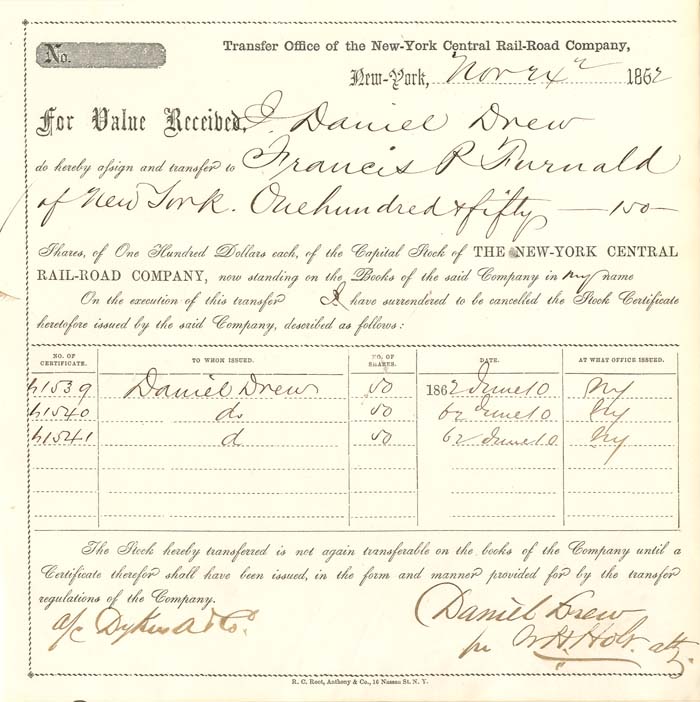 No.
Transfer Office of the New-York Central Rail-Road Company,
New-York, Nov 24 1862
For Value Received, I, Daniel Drew
do hereby assign and transfer to Francis P Furnald
of New York. One hundred & fifty — 150 —
Shares, of One Hundred Dollars each, of the Capital Stock of THE NEW-YORK CENTRAL
RAIL-ROAD COMPANY, now standing on the Books of the said Company in my name
On the execution of this transfer I have surrendered to be cancelled the Stock Certificate
heretofore issued by the said Company, described as follows:
NO. OF CERTIFICATE. TO WHOM ISSUED. NO. OF SHARES. DATE. AT WHAT OFFICE ISSUED.
41539 Daniel Drew 50 1862 June 10 NY
41540 do 50 62 June 10 NY
41541 d 50 62 June 10 NY
The Stock hereby transferred is not again transferable on the books of the Company until a
Certificate therefor shall have been issued, in the form and manner provided for by the transfer
regulations of the Company.
a/c Dykers & Co.
Daniel Drew
pr W.H. Holt. atty.
R. C. Root, Anthony & Co., 16 Nassau St. N. Y.